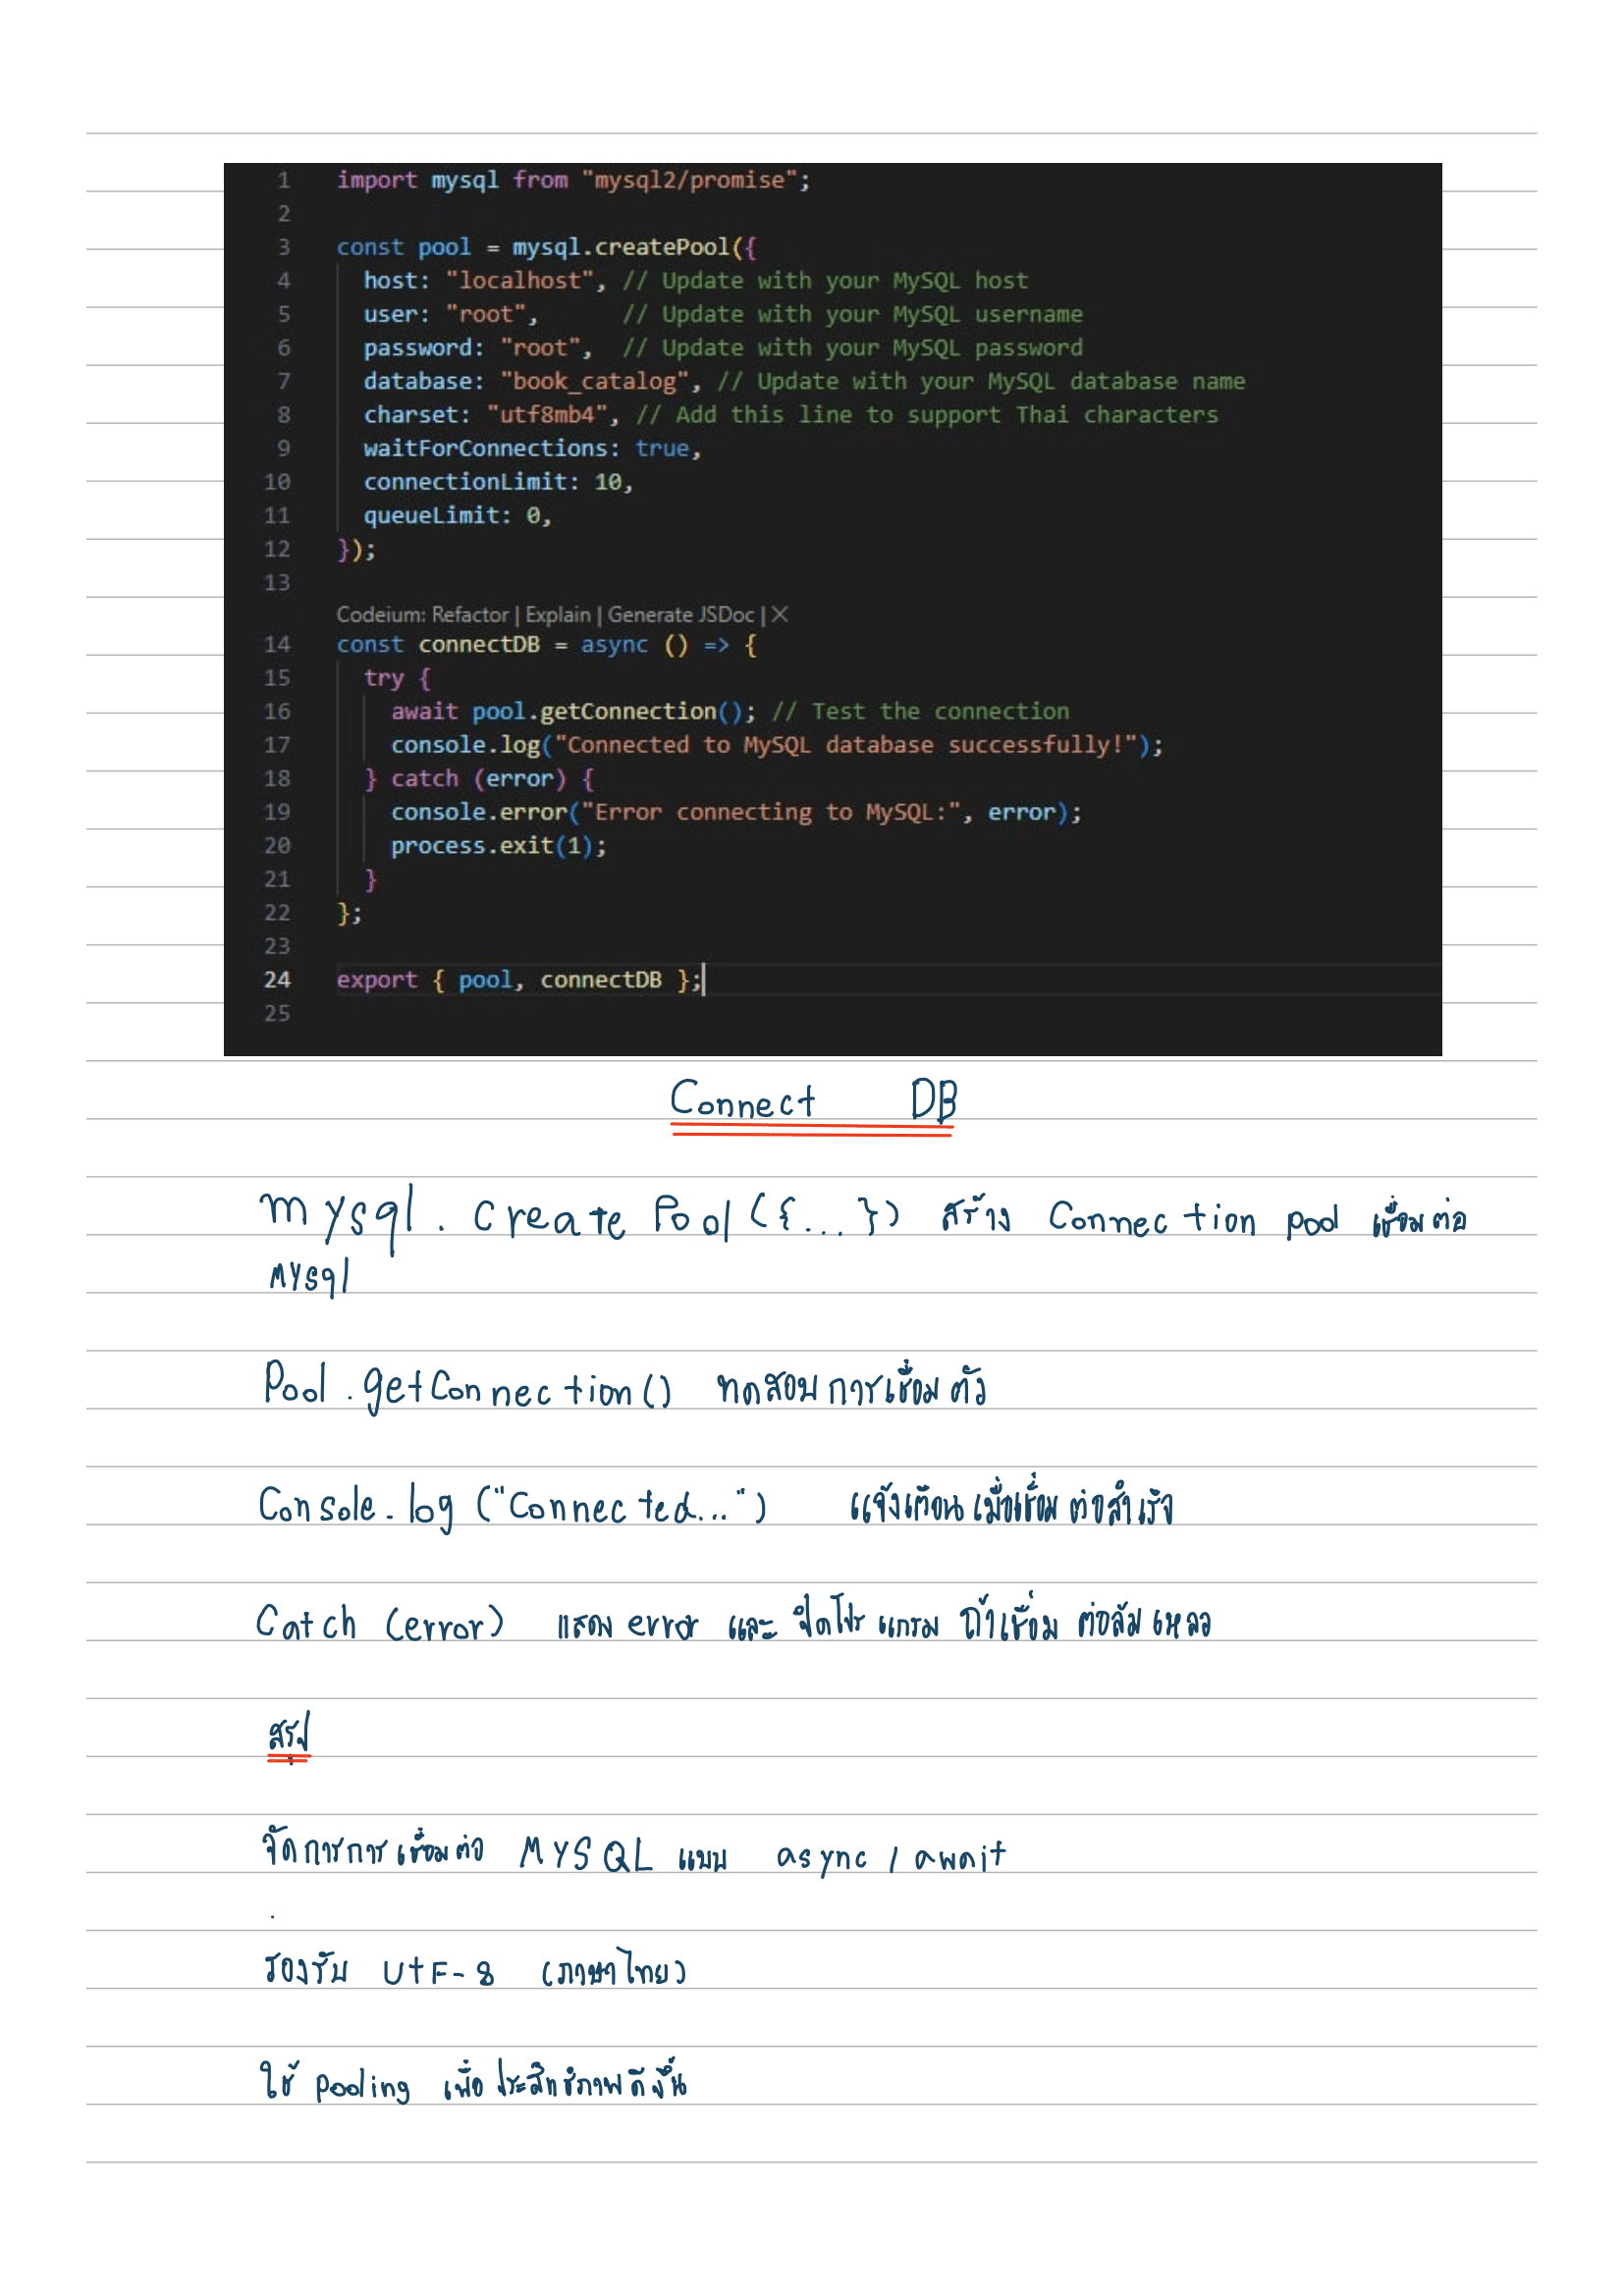 1 import mysql from "mysql2/promise";
2
3 const pool = mysql.createPool({
4 host: "localhost", // Update with your MySQL host
5 user: "root", // Update with your MySQL username
6 password: "root", // Update with your MySQL password
7 database: "book_catalog", // Update with your MySQL database name
8 charset: "utf8mb4", // Add this line to support Thai characters
9 waitForConnections: true,
10 connectionLimit: 10,
11 queueLimit: 0,
12 });
13
Codeium: Refactor | Explain | Generate JSDoc | ×
14 const connectDB = async () => {
15 try {
16 await pool.getConnection(); // Test the connection
17 console.log("Connected to MySQL database successfully!");
18 } catch (error) {
19 console.error("Error connecting to MySQL:", error);
20 process.exit(1);
21 }
22 };
23
24 export { pool, connectDB };
25
Connect DB
mysql.createPool({...}) สร้าง Connection pool เชื่อมต่อ
Mysql
Pool.getConnection() ทดสอบการเชื่อมตัว
Console.log ("Connected...") แจ้งเตือนเมื่อเชื่อมต่อสำเร็จ
Catch (error) แสดง error และ ปิดโปรแกรม ถ้าเชื่อมต่อล้มเหลว
สรุป
จัดการการเชื่อมต่อ MYSQL แบบ async / await
.
รองรับ UtF-8 (ภาษาไทย)
ใช้ pooling เพื่อประสิทธิภาพดีขึ้น